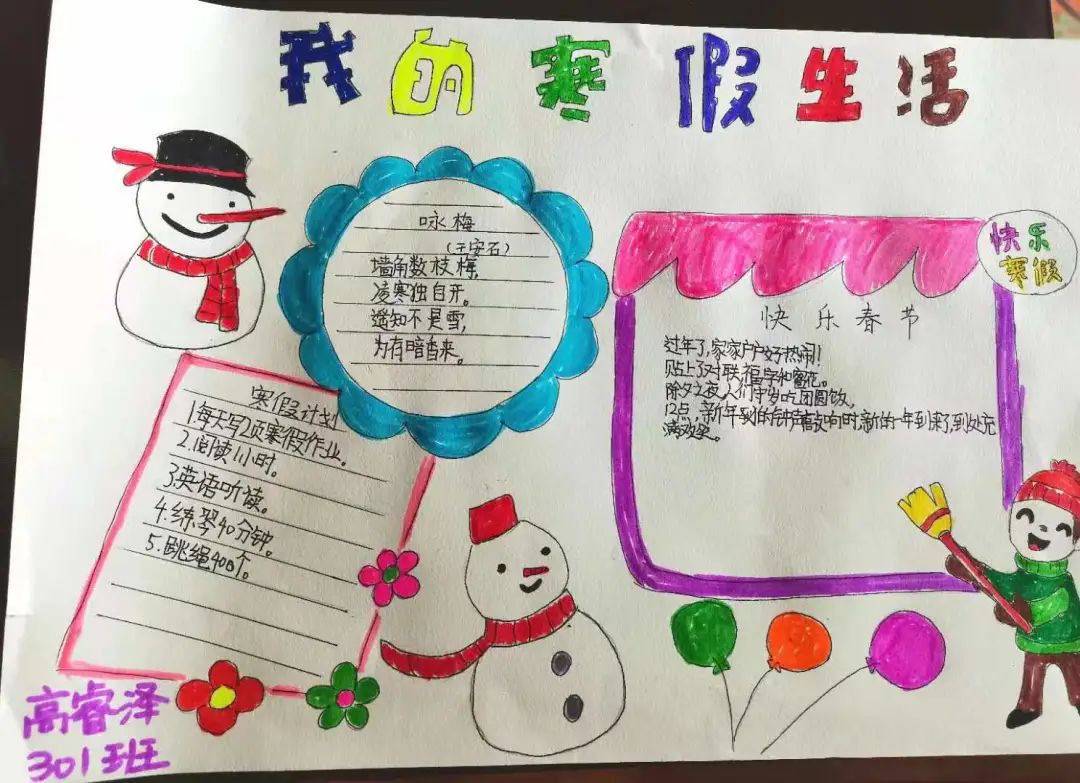 我的寒假生活
咏梅
(王安石)
墙角数枝梅,
凌寒独自开。
遥知不是雪,
为有暗香来。
快乐
寒假
快乐春节
过年了,家家户户好热闹!
贴上了对联、福字和窗花。
除夕之夜,人们守岁吃团圆饭,
12点,新年到的钟声敲响时,新的一年到来了,到处充
满欢笑。
寒假计划
1.每天写2页寒假作业。
2.阅读1小时。
3.英语听读。
4.练琴40分钟。
5.跳绳400个。
高睿泽
301班